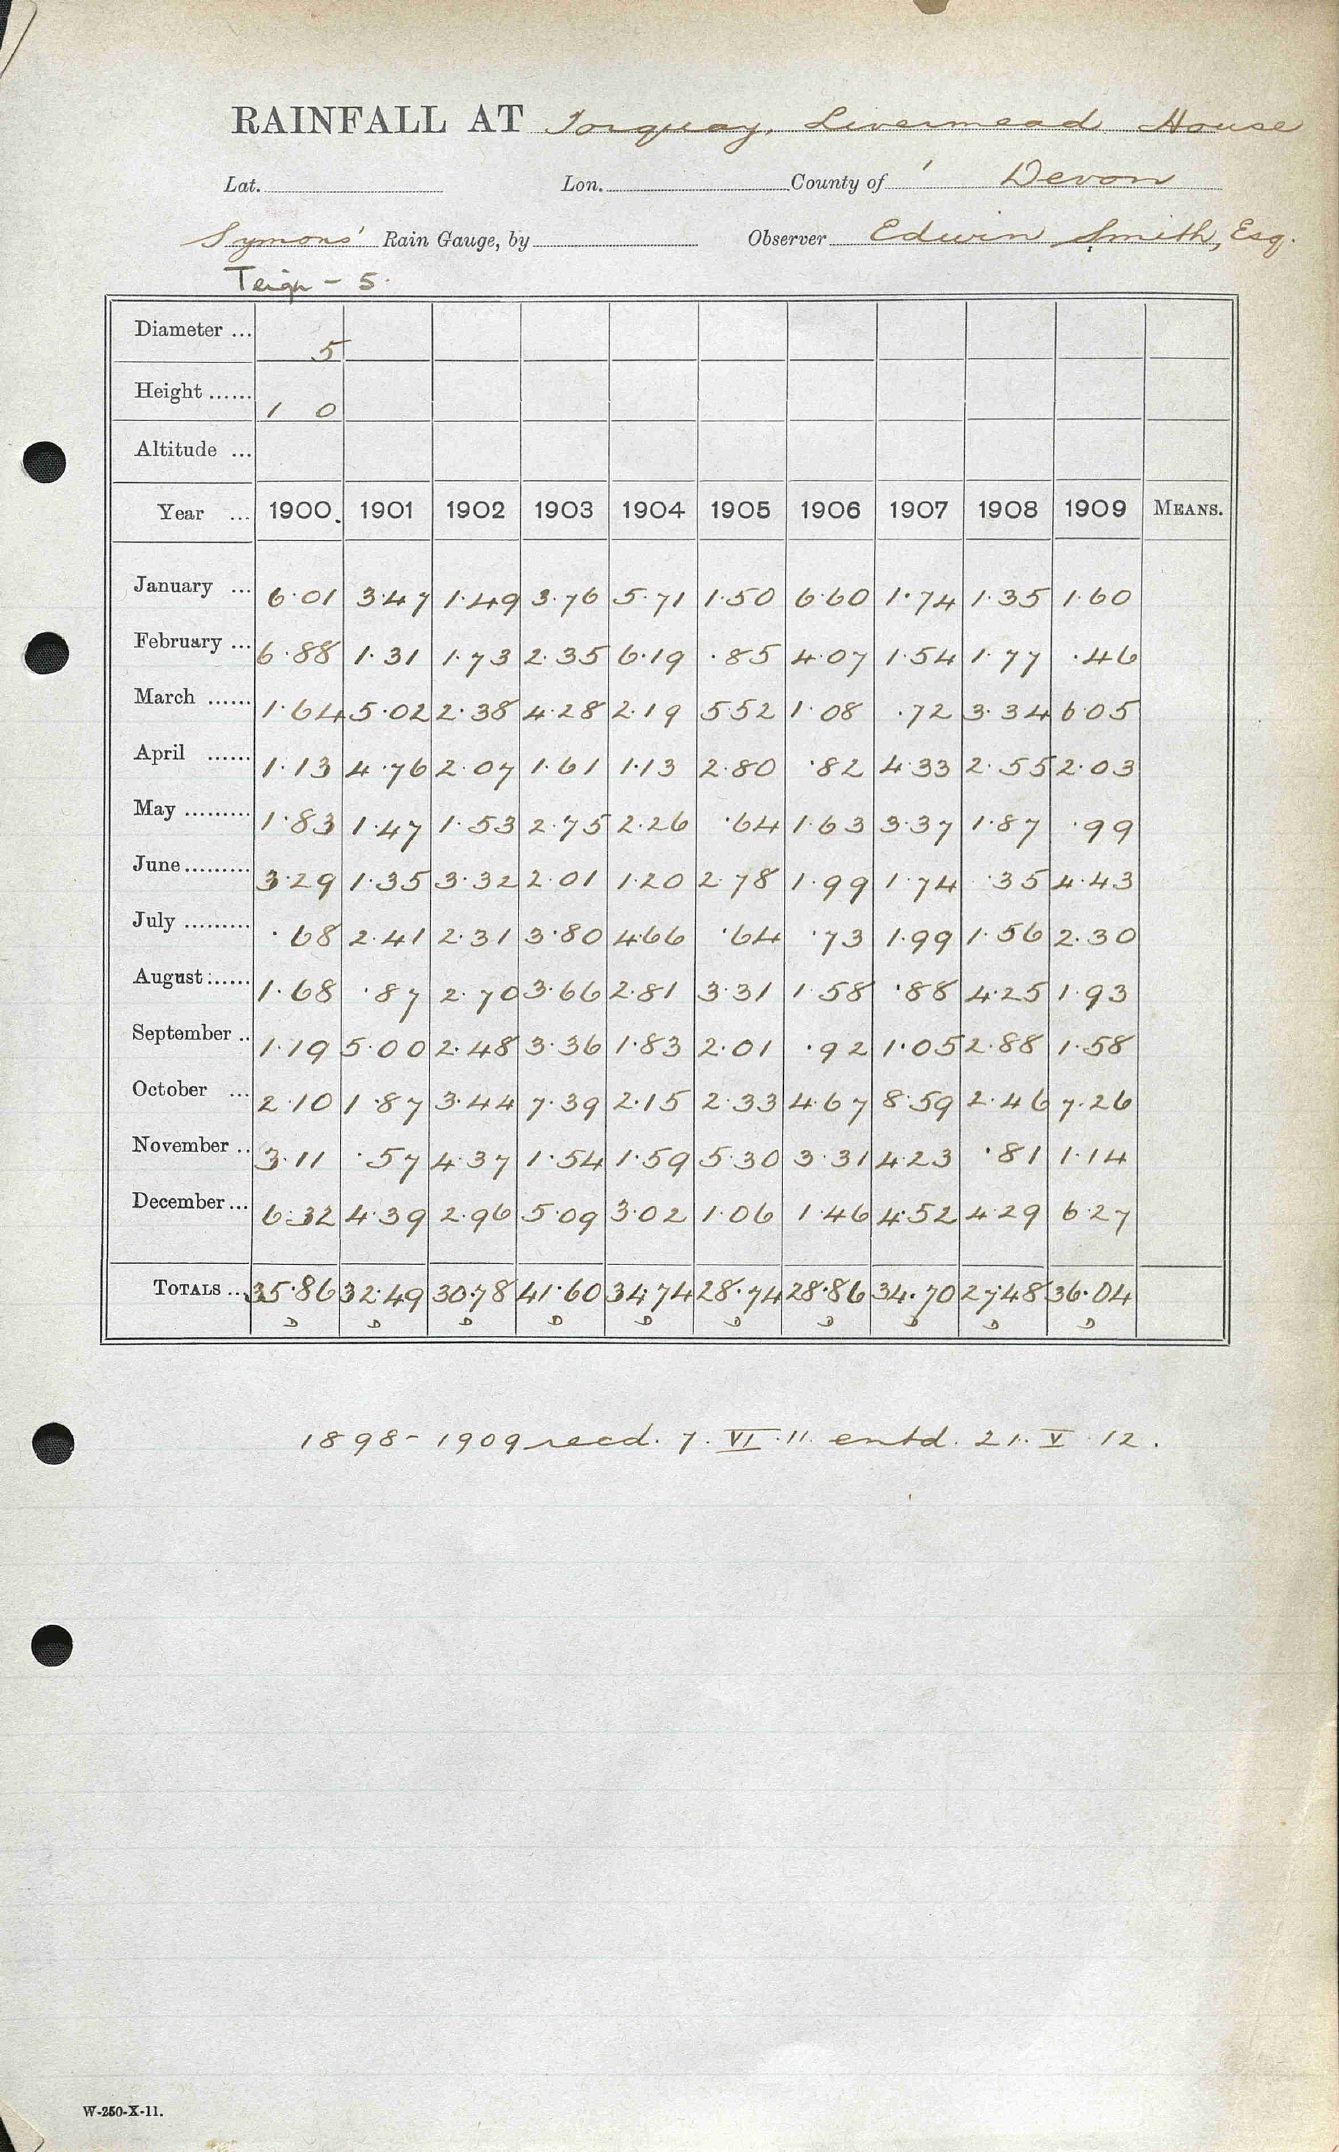 RAINFALL AT Torquay, Livermead House
Lat. Lon. County of Devon
Symons' Rain Gauge, by Observer Edwin Smith, Esq.
Teign - 5.
Diameter ... 5
Height ...... 1 0
Altitude ...
Year ... 1900. 1901 1902 1903 1904 1905 1906 1907 1908 1909 MEANS.
January ... 6.01 3.47 1.49 3.76 5.71 1.50 6.60 1.74 1.35 1.60
February ... 6.88 1.31 1.73 2.35 6.19 .85 4.07 1.54 1.77 .46
March ...... 1.64 5.02 2.38 4.28 2.19 5.52 1.08 .72 3.34 6.05
April ...... 1.13 4.76 2.07 1.61 1.13 2.80 .82 4.33 2.55 2.03
May ......... 1.83 1.47 1.53 2.75 2.26 .64 1.63 3.37 1.87 .99
June ......... 3.29 1.35 3.32 2.01 1.20 2.78 1.99 1.74 .35 4.43
July ......... .68 2.41 2.31 3.80 4.66 .64 .73 1.99 1.56 2.30
August ...... 1.68 .87 2.70 3.66 2.81 3.31 1.58 .88 4.25 1.93
September .. 1.19 5.00 2.48 3.36 1.83 2.01 .92 1.05 2.88 1.58
October ... 2.10 1.87 3.44 7.39 2.15 2.33 4.67 8.59 2.46 7.26
November .. 3.11 .57 4.37 1.54 1.59 5.30 3.31 4.23 .81 1.14
December ... 6.32 4.39 2.96 5.09 3.02 1.06 1.46 4.52 4.29 6.27
TOTALS ... 35.86 32.49 30.78 41.60 34.74 28.74 28.86 34.70 27.48 36.04
D D D D D D D D D D
1898 - 1909 recd. 7. VI. 11. entd. 21. V. 12.
W-250-X-11.